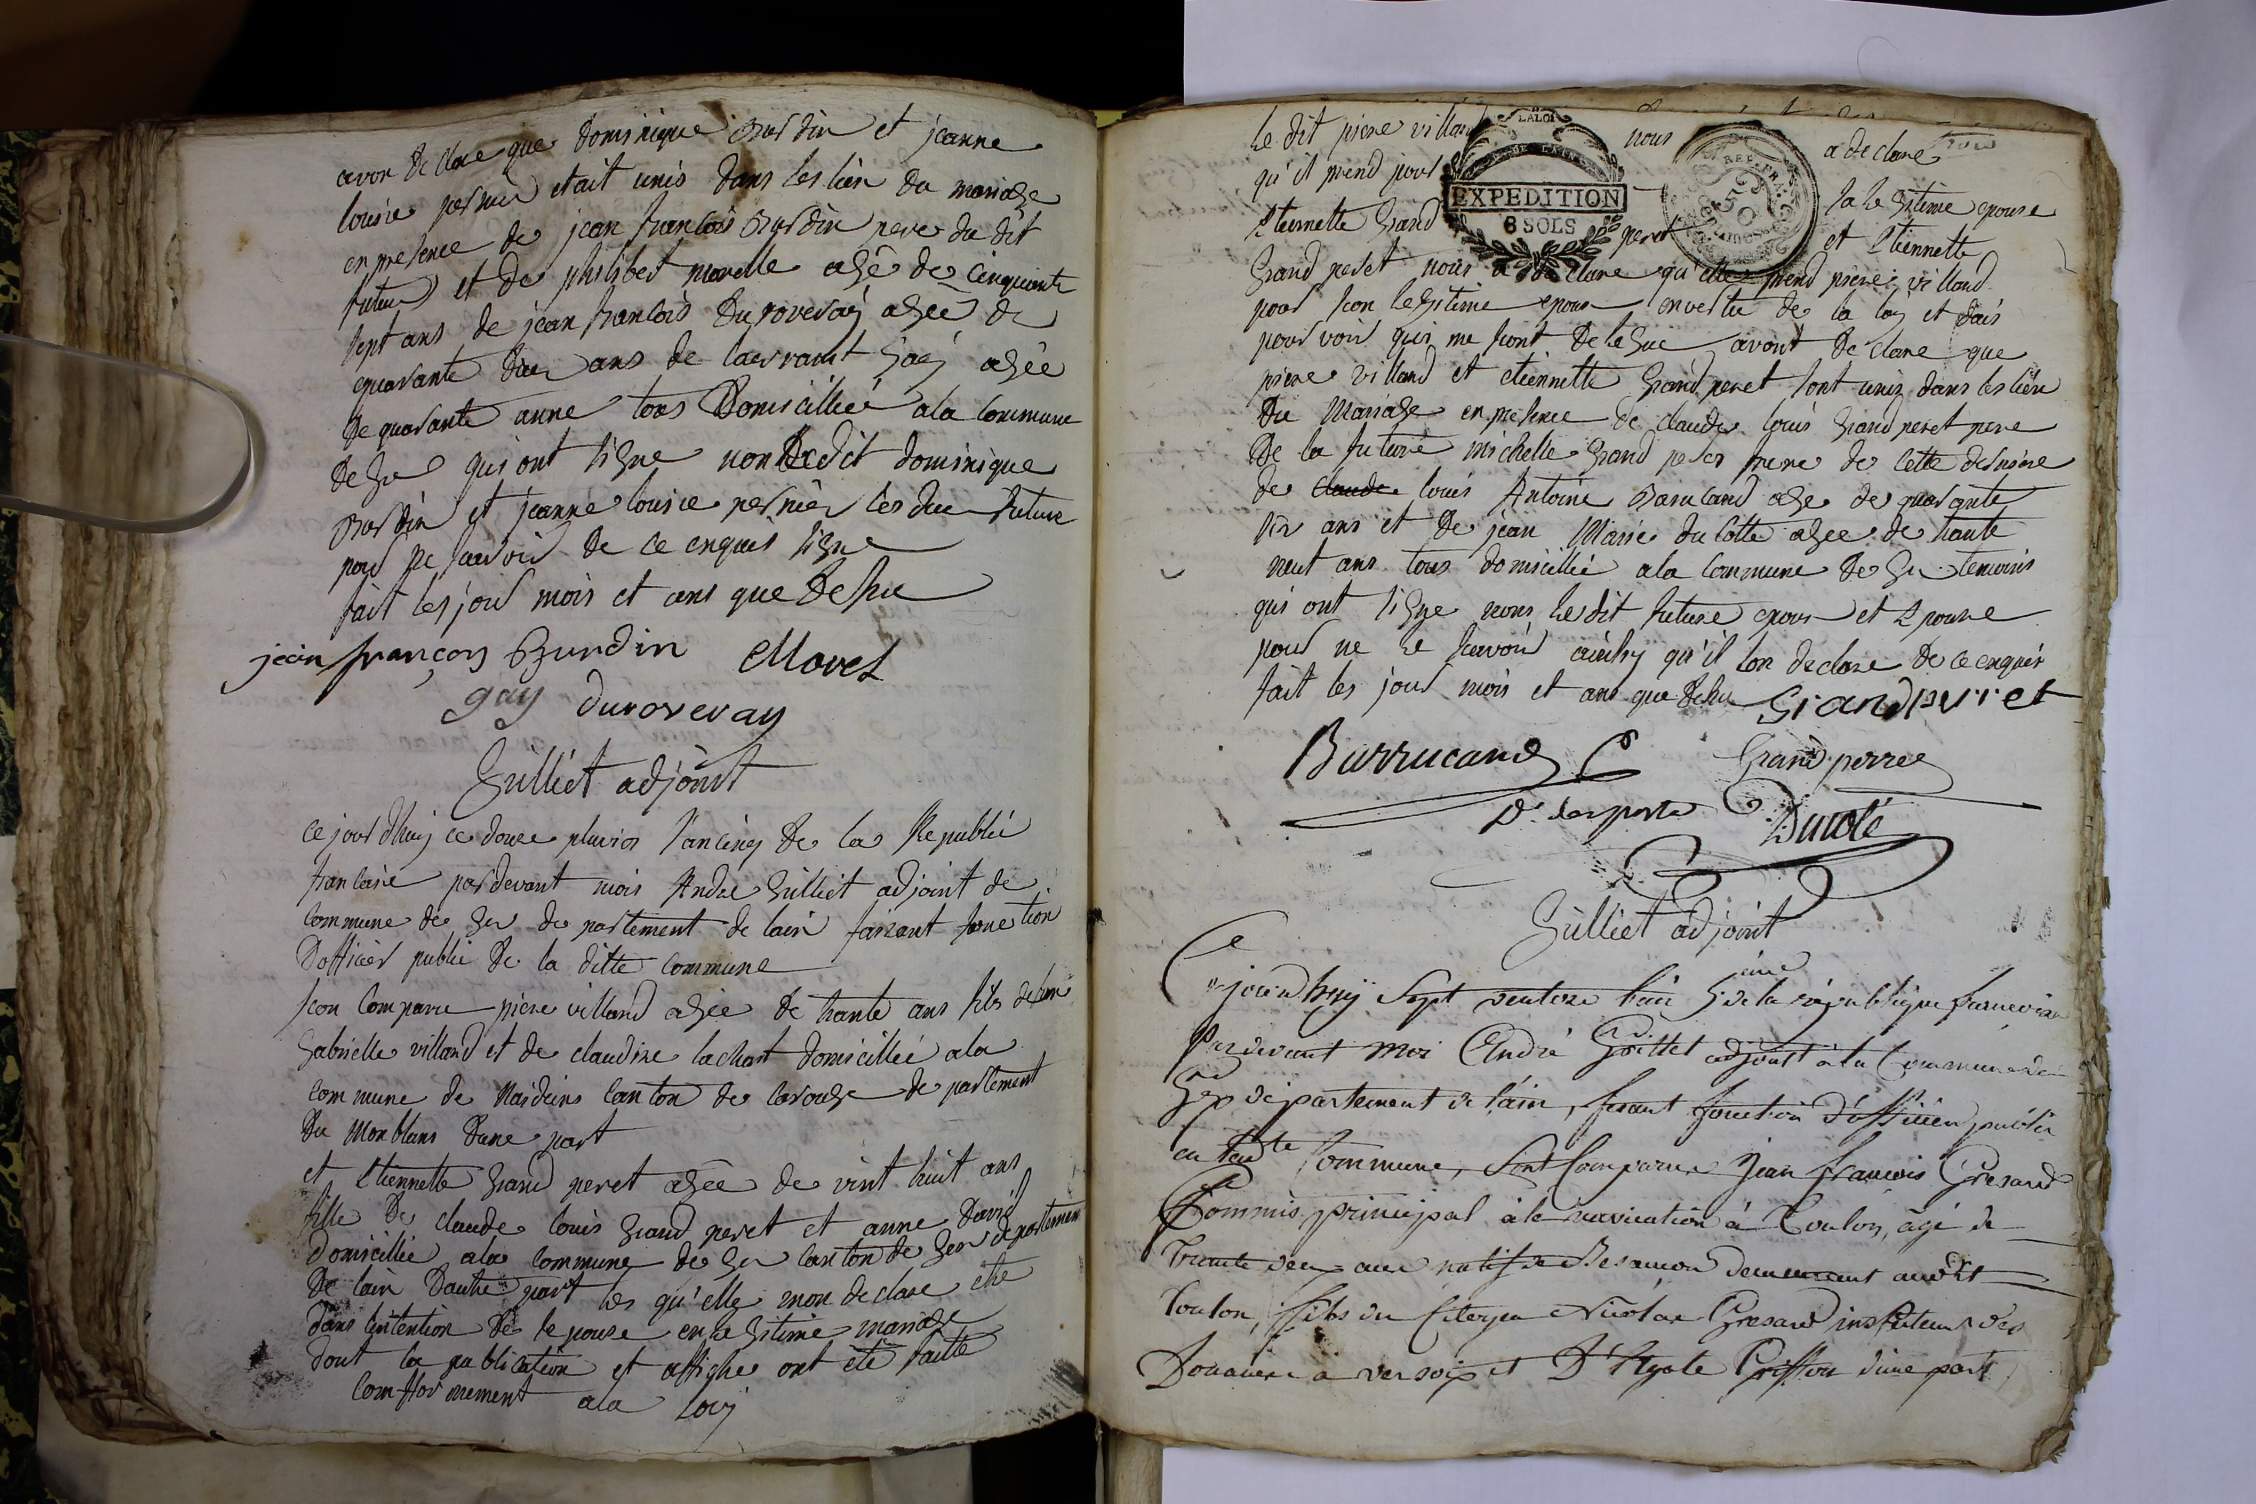 avon de clare que dominique Burdin et jeanne
louise pernier etait unis dans les lien du mariage
en presence de jean francois Burdin pere du dit
futeur et de philibert morelle agé de cinquante
sept ans de jean francois Duroveray agée de
quarante deux ans de gay agée
de quarante anne tous Domicillié a la commune
de Gex qui ont signe non le dit dominique
Burdin et jeanne louise pernier les deu future
pour ne savoir de ce enquis signe
fait les jour mois et ans que desu
jean françoy Burdin Morel
gay duroveray
Gilliet adjoint
ce jour d'huy ce douze pluvios l'an cinq de la Republi
francaise pardevant mois André Gilliet adjoint de
commune de Gex de partement de lain faisant fonction
D'officier public de la ditte commune
son comparu piere villand agée de trante ans fils de
Gabrielle villand et de claudine lachat domicilleé a la
commune de canton de carouge de partement
Du Monblans Dune part
et Etiennette Grand peret agée de vint huit ans
fille De claude louis Grand peret et anne David
domicillié a la commune de Gex canton de Gex de partemen
De lain Dautre part les qu'elle mon declare etre
dans lintention de se pouse en legitime mariage
dont la publication et affiche ont été faitte
com for mement a la Loy
Le dit piere villand nous a declare
qu'il prend pour la legitime epouse
Etiennette Grand peret et Etiennette
LA LOI
EXPEDITION
8 SOLS
REP. FRA.
Grand peret nous a declare qu'elle prend piere villand
pour son legitime epous en vertu de la loy et dais
pouvoir qui me sont delegue avont de clare que
piere villand et etiennette Grand peret sont uniz dans les lien
Du Mariage en presence de claude louis Grand peret pere
De la future michelle Grand peret frere de cette derniere
de claude louis Antoine Barucand age de quarante
six ans et de jean Marie du cotte agee de trante
neuf ans tous domicillié a la commune de Gex temoins
qui ont signe nons le dit future epous et Epouse
pour ne le savoir ainsy qu'il lon declare de ce enquis
fait les jour mois et ans que desu Grandperret
Barrucand Grand perret
D. desporte Ducoté
Gilliet adjoint
Ce jourd'huy Sept ventose l'an 5ieme de la république francoise
Pardevant moi André Gilliet adjoint à la Commune de
Gex département de l'ain, fesant fonction d'officier public
en laditte Commune, Sont Comparus Jean francois Gresard
Commis principal à la navication à Toulon, agé de
trente deux ans natif de Besancon demeurant audit
Toulon, fils du Citoyen Nicolas Gresard instituteur des
Douanes à versoix et D' Griffon d'une part